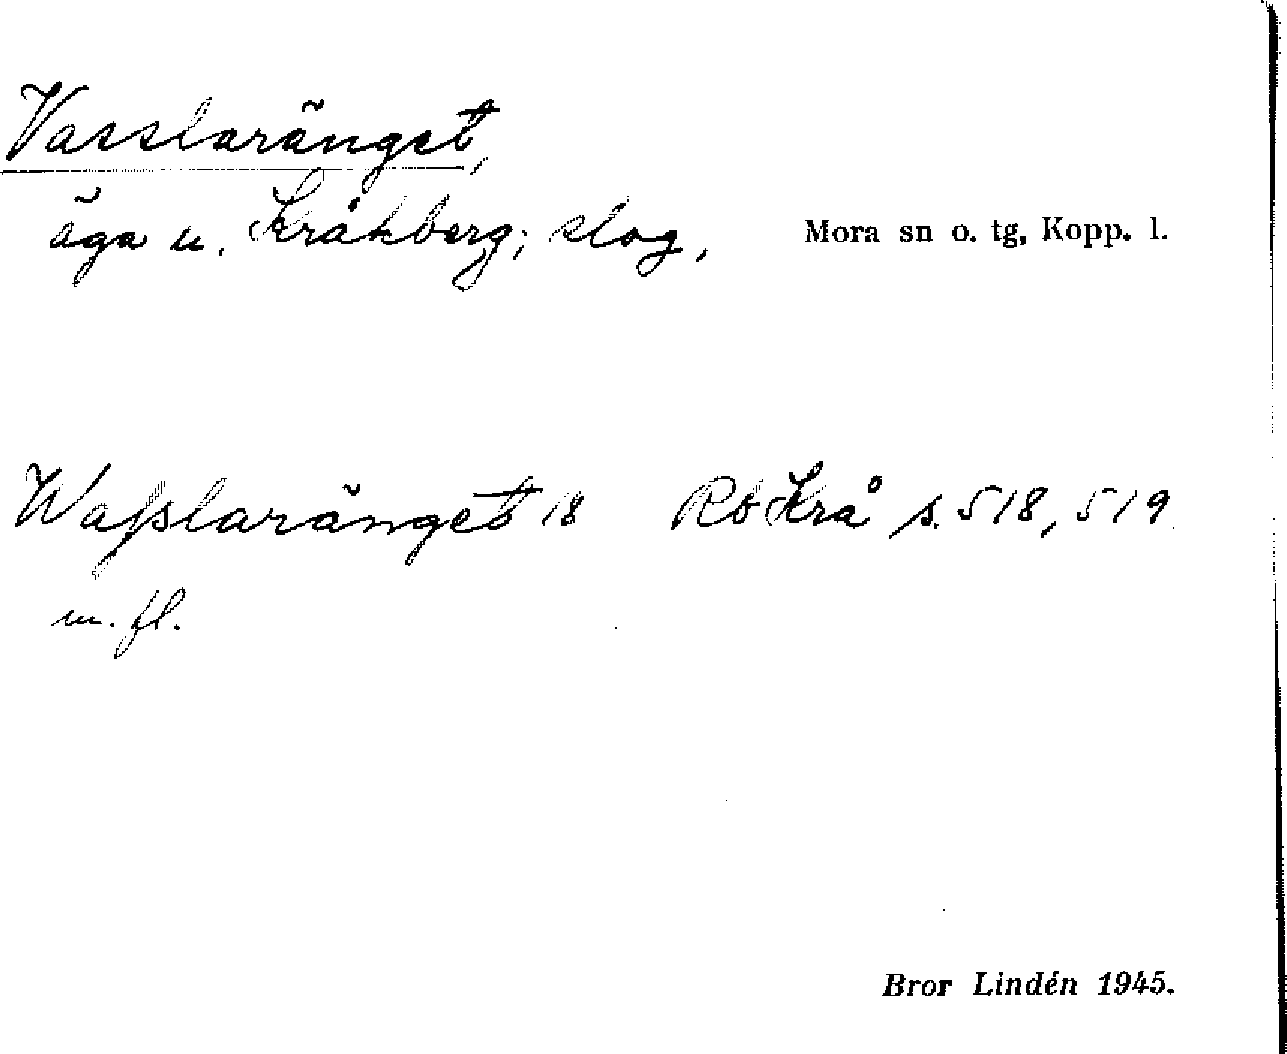 Vasslaränget,
äga u. Kråkberg; slog, Mora sn o. tg, Kopp. l.
Waſslaränget 18 Rb Krå s. 518, 519
m. fl.
Bror Lindén 1945.